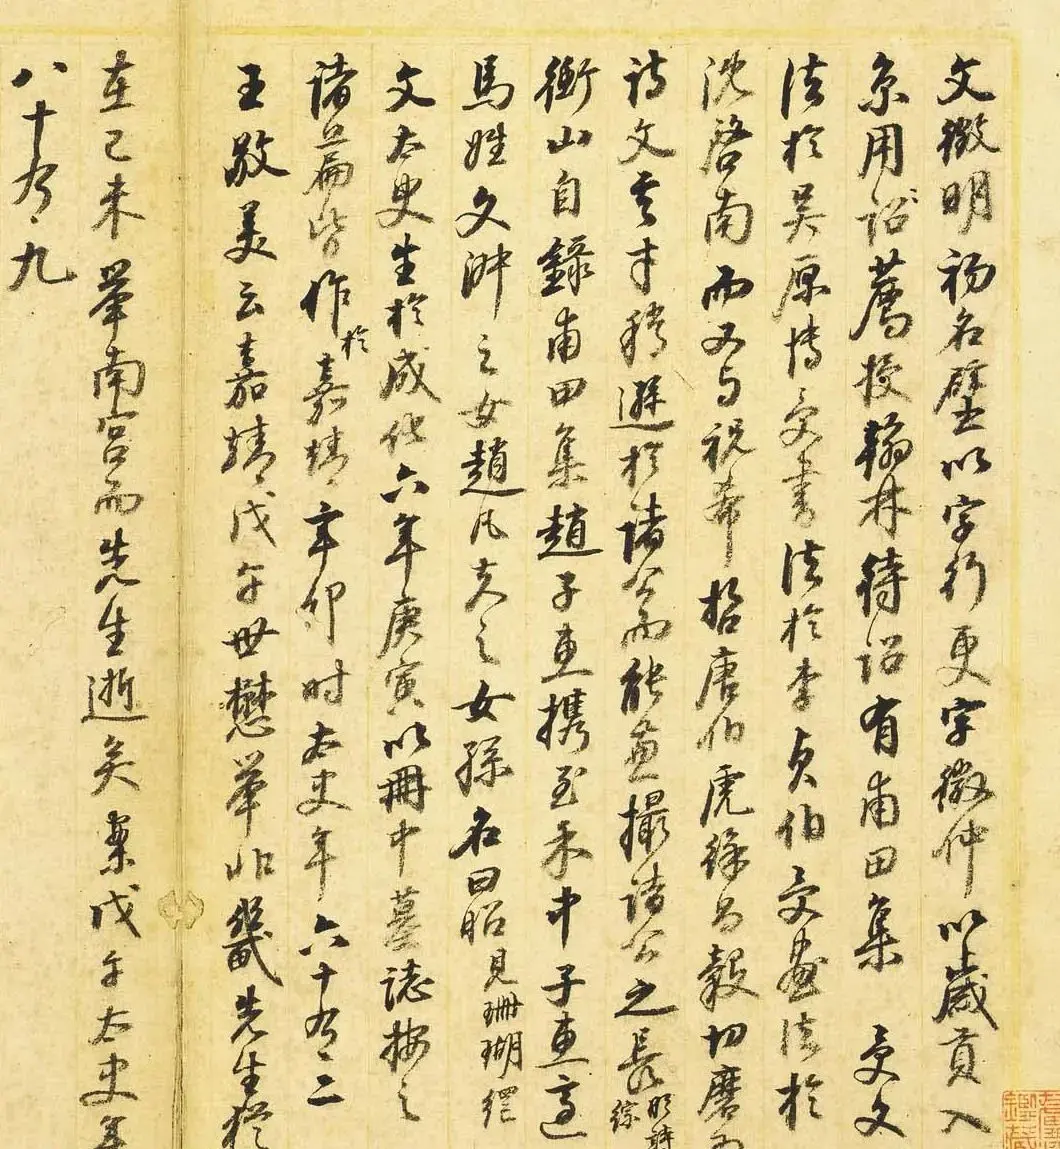 文徵明初名璧以字行更字徵仲以歲貢入
京用詔薦授翰林待詔有甫田集 受文
法於吳原博受書法於李貞伯受畫法於
沈啓南而又与祝希哲唐伯虎徐昌穀切磨為
詩文其才稍遜於諸公而能兼撮諸公之長明詩綜
衡山自錄甫田集趙子惠携至米中子惠高
馬姓文淑之女趙凡夫之女孫名曰昭見珊瑚網
文太史生於成化六年庚寅此冊中墓誌按之
諸篇皆作於嘉靖辛卯時太史年六十有二
王敬美云嘉靖戊午世懋舉此畿先生猶
在己未舉南宮而先生逝矣案戊午太史年
八十有九